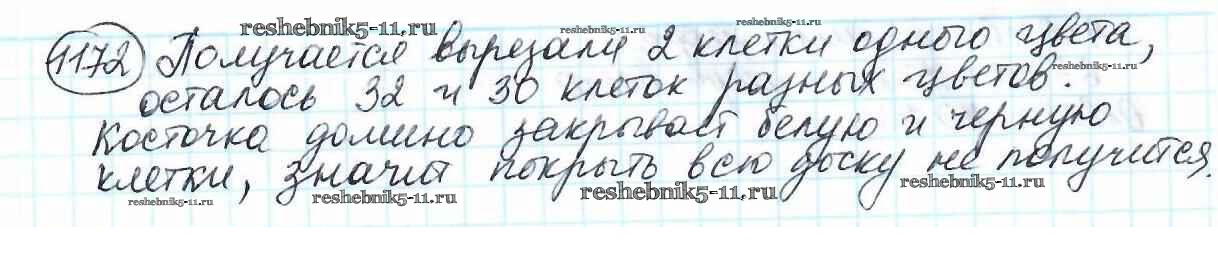 reshebnik5-11.ru
reshebnik5-11.ru
reshebnik5-11.ru
1172 Получается вырезали 2 клетки одного цвета,
reshebnik5-11.ru
осталось 32 и 30 клеток разных цветов.
Косточка домино закрывает белую и черную
клетки, значит покрыть всю доску не получится.
reshebnik5-11.ru
reshebnik5-11.ru
reshebnik5-11.ru
reshebnik5-11.ru